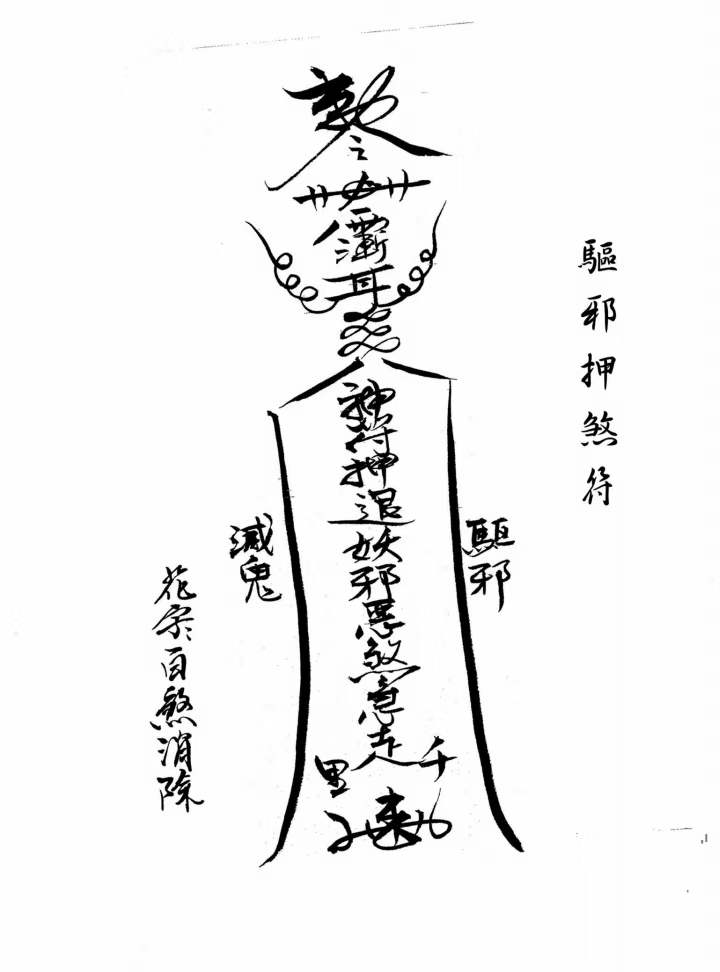 驅邪押煞符
敕令
神符押退妖邪惡煞急走千里
驅邪
滅鬼
花字百煞消除